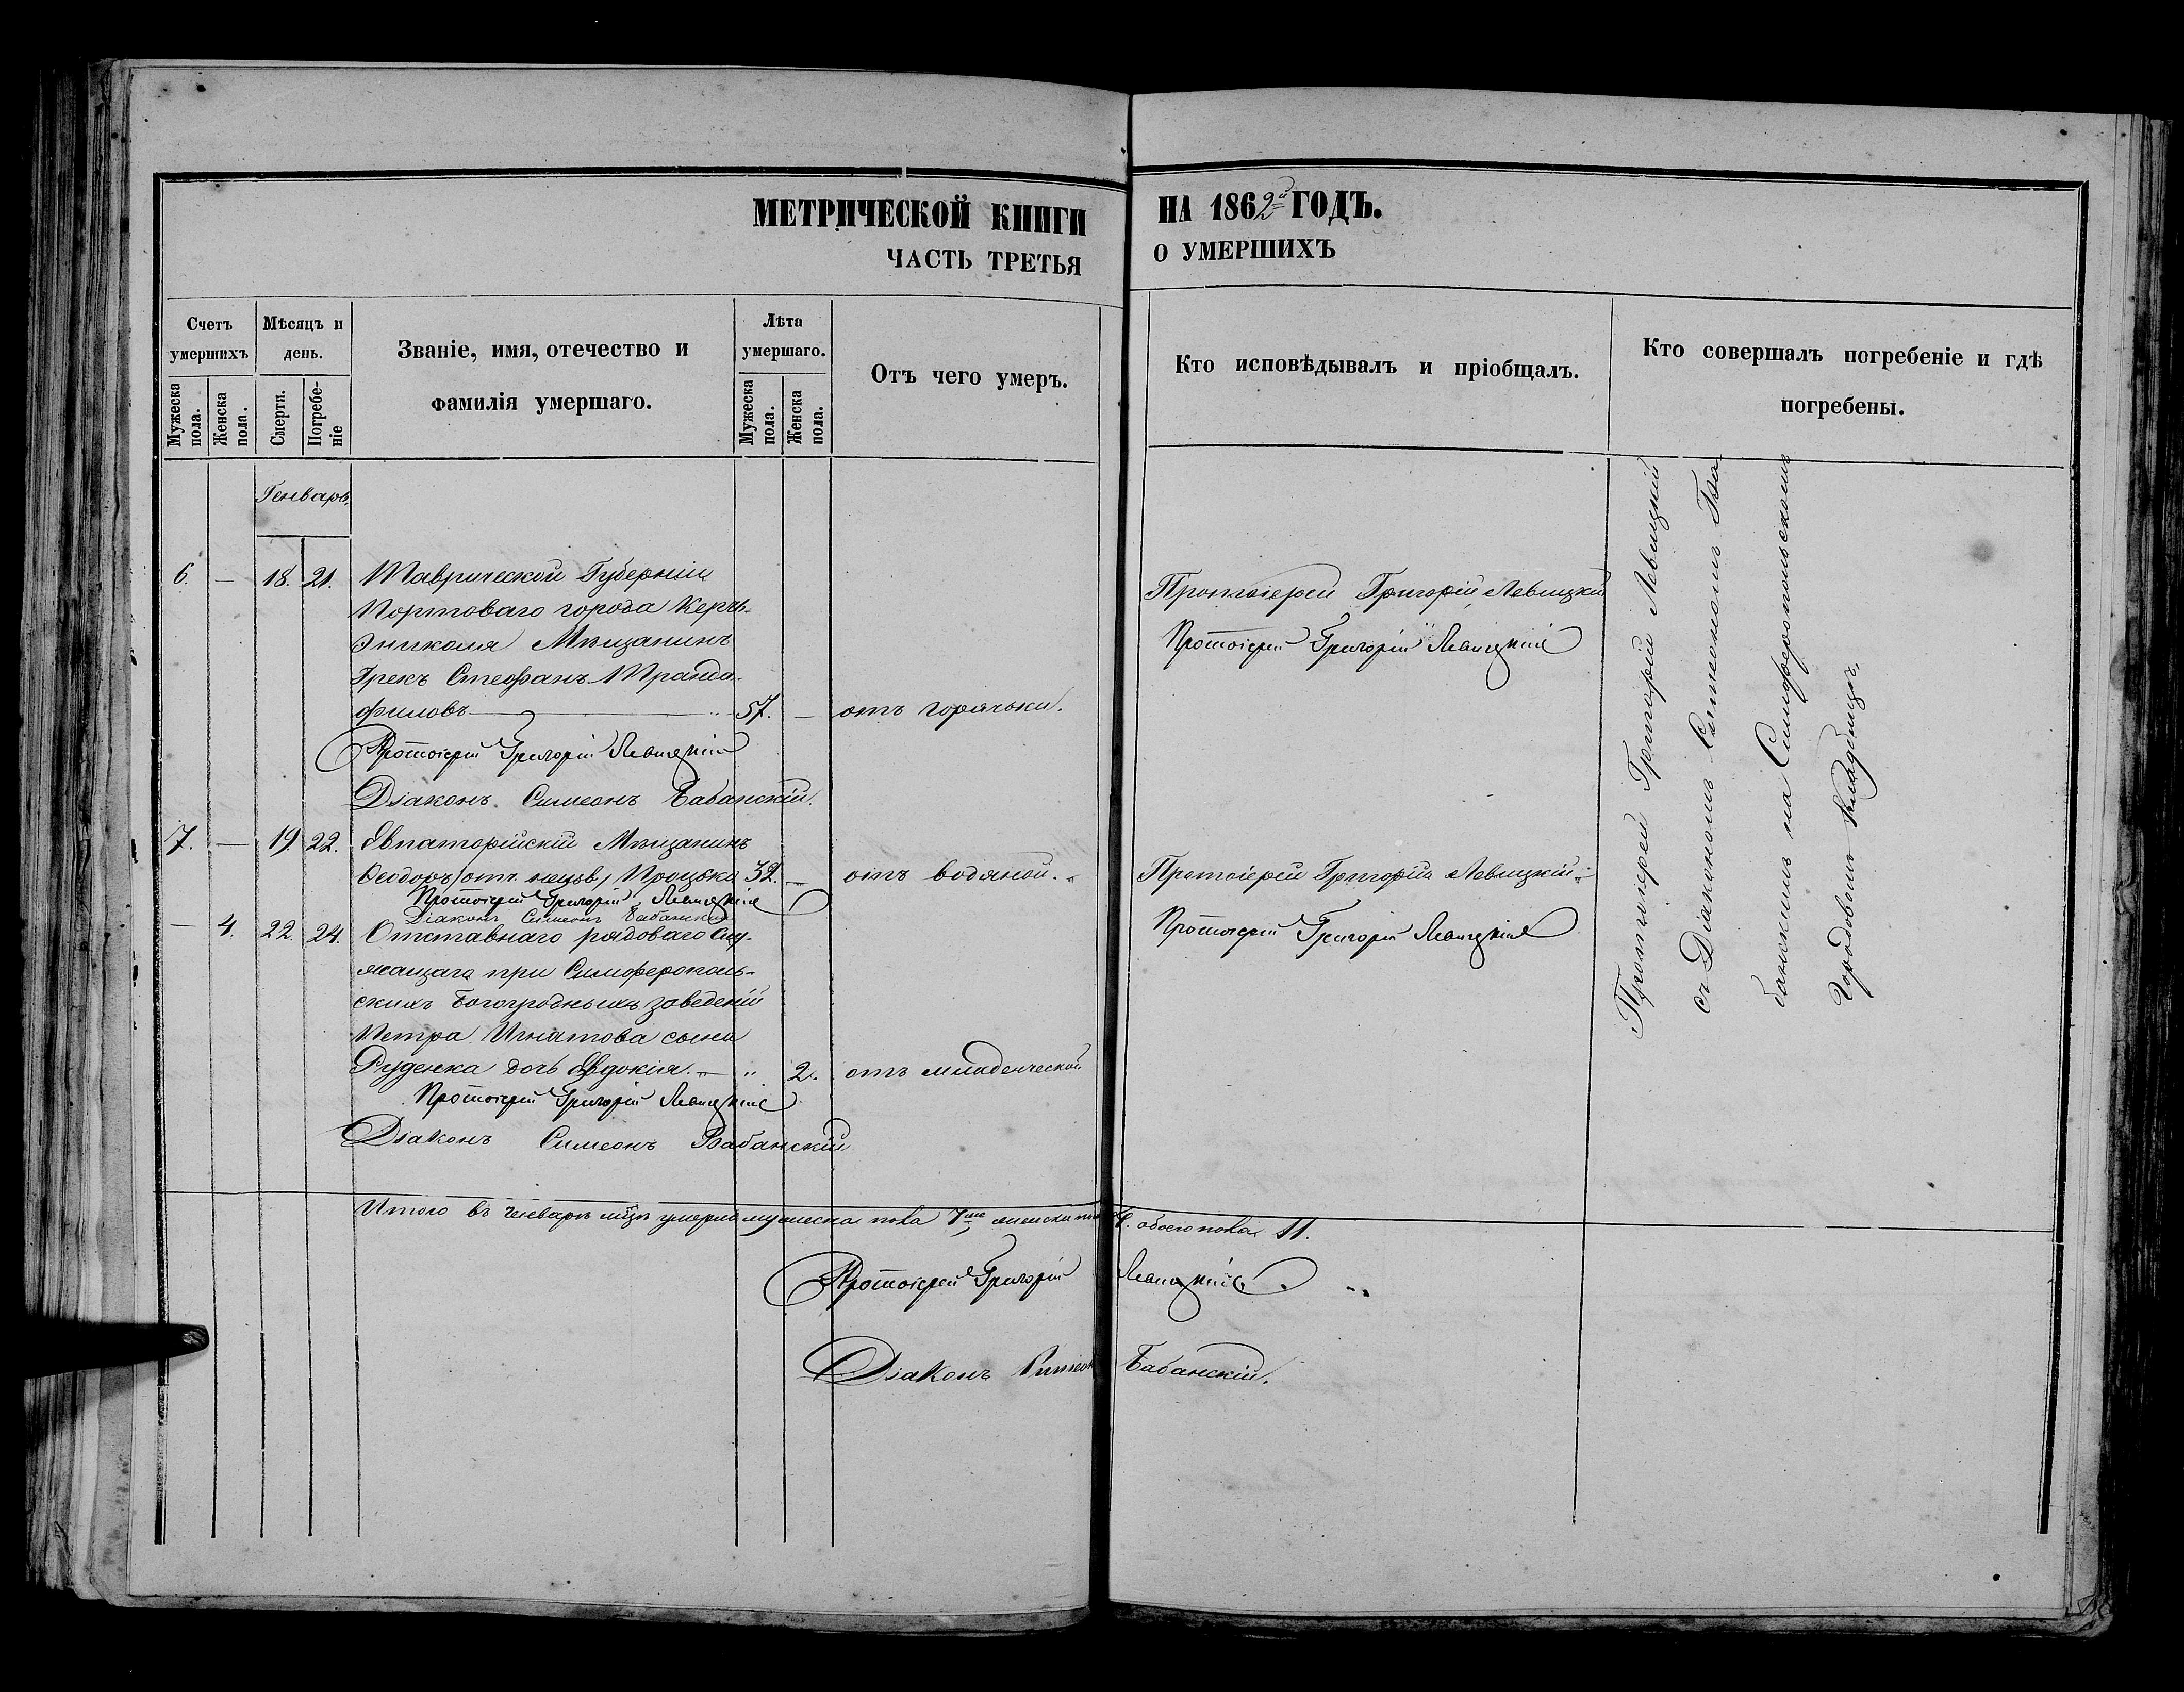 МЕТРИЧЕСКОЙ КНИГИ НА 1862й ГОДЪ.
ЧАСТЬ ТРЕТЬЯ О УМЕРШИХЪ
Счетъ умершихъ
Мужеска пола.
Женска пола.
Мѣсяцъ и день.
Смерти.
Погребе-
ніе
Званіе, имя, отечество и
фамилія умершаго.
Лѣта умершаго.
Мужеска пола.
Женска пола.
Отъ чего умеръ.
Кто исповѣдывалъ и пріобщалъ.
Кто совершалъ погребеніе и гдѣ
погребены.
Генварь
6. — 18. 21. Таврической Губерніи
Портоваго города Керчь-
Эниколя Мѣщанинъ
Грекъ Стефанъ Пранда-
филовъ 57. — отъ горячьки.
Протоіерей Григорій Левицкій
Протоіерей Григорій Левицкій
Протоіерей Григорій Левицкій
Діаконъ Симеонъ Бабанскій.
7. — 19. 22. Евпаторійскій Мѣщанинъ
Ѳеодоръ Процько 32. — отъ водяной.
Протоіерей Григорій Левицкій
Діаконъ Симеонъ Бабанскій
Протоіерей Григорій Левицкій
Протоіерей Григорій Левицкій
— 4. 22. 24. Отставнаго рядоваго Слу-
жащаго при Симферополь-
скихъ Богоугодныхъ заведеній
Петра Игнатова сына
Руденка дочь Евдокія. — " 2. отъ младенческой
Протоіерей Григорій Левицкій
Діаконъ Симеонъ Бабанскій
Протоіерей Григорій Левицкій
съ Діакономъ Симеономъ Ба
банскимъ на Симферопольскомъ
Городовомъ Кладбищѣ.
Итого въ Генварѣ мцѣ умерло мужеска пола 7 женска пола 4. обоего пола 11.
Протоіерей Григорій Левицкій
Діаконъ Симеонъ Бабанскій.